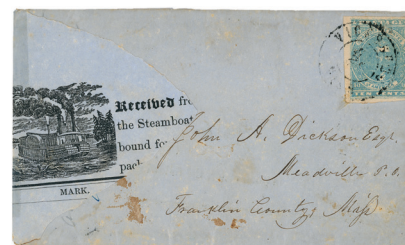 Received fro
the Steamboat
bound for
pack
MARK.
John A. Dickson Esqr.
Meadville P.O.
Franklin County, Miss